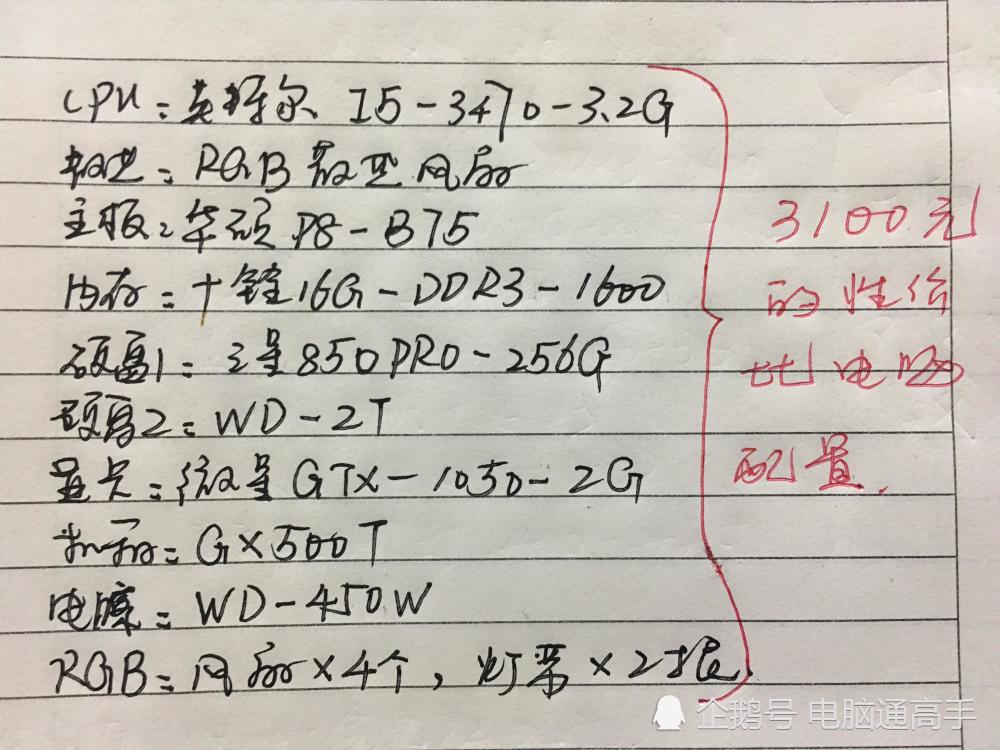 CPU：英特尔 I5-3470-3.2G
散热：RGB散热风扇
主板：华硕P8-B75
内存：十铨16G-DDR3-1600
硬盘1：三星850PRO-256G
硬盘2：WD-2T
显卡：微星GTX-1050-2G
机箱：GX500T
电源：WD-450W
RGB：风扇×4个，灯带×2根
3100元
的性价
比电脑
配置.
企鹅号 电脑通高手